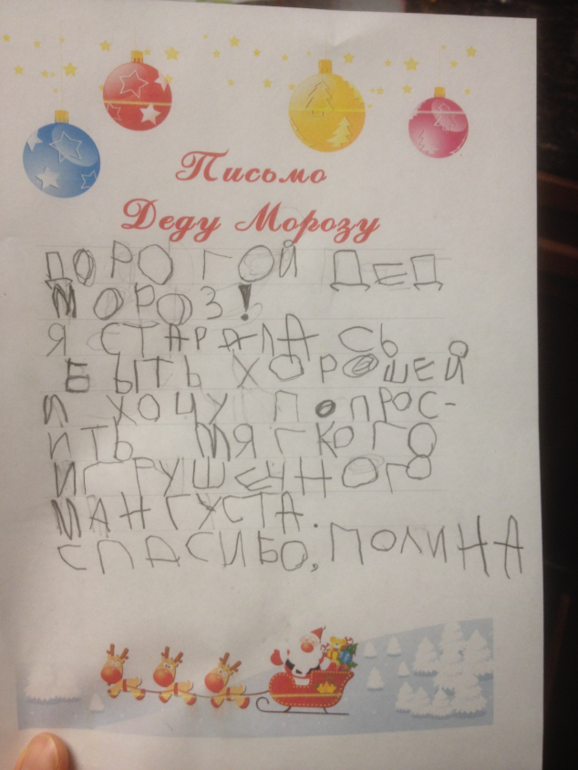 Письмо
Деду Морозу
ДОРОГОЙ ДЕД
МОРОЗ!
Я СТАРАЛАСЬ
БЫТЬ ХОРОШЕЙ
И ХОЧУ ПОПРОС-
ИТЬ МЯГКОГО
ИГРУШЕЧНОГО
МАНГУСТА.
СПАСИБО, ПОЛИНА